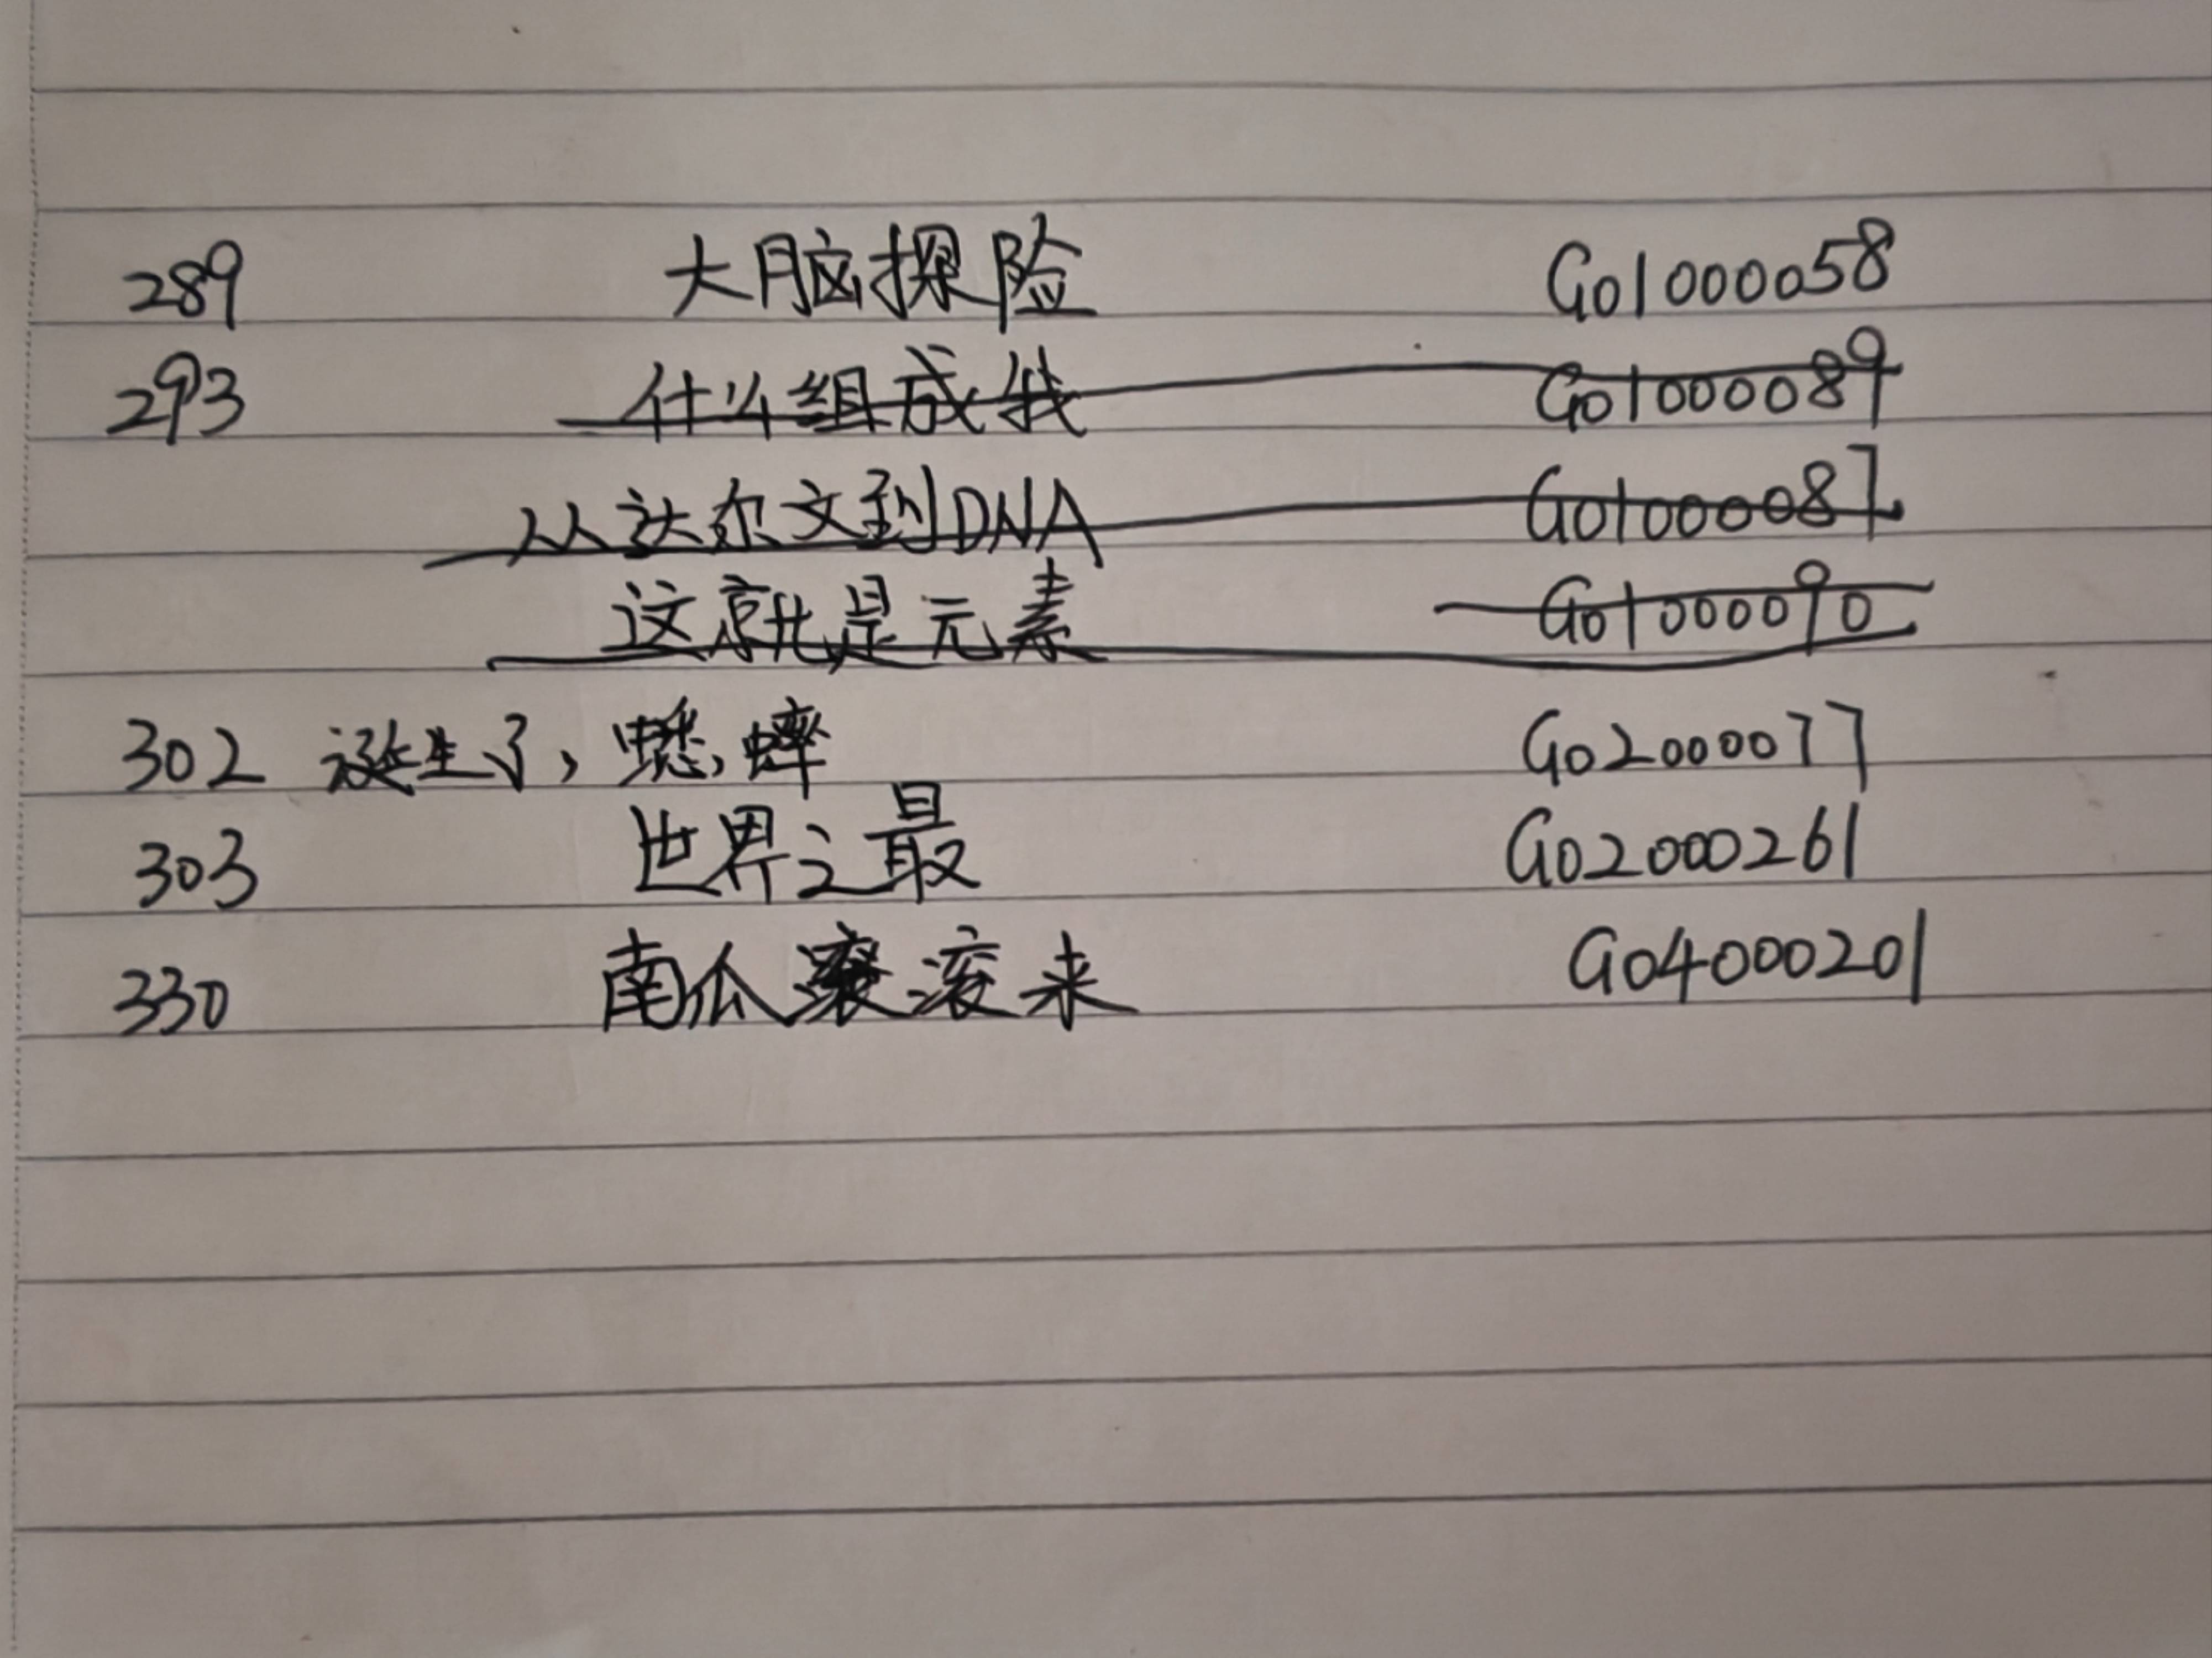 289 大脑探险 G01000058
293 什么组成我 G01000089
从达尔文到DNA G01000087
这就是元素 G01000090
302 诞生了,蟋蟀 G02000077
303 世界之最 G02000261
330 南瓜滚滚来 G04000201